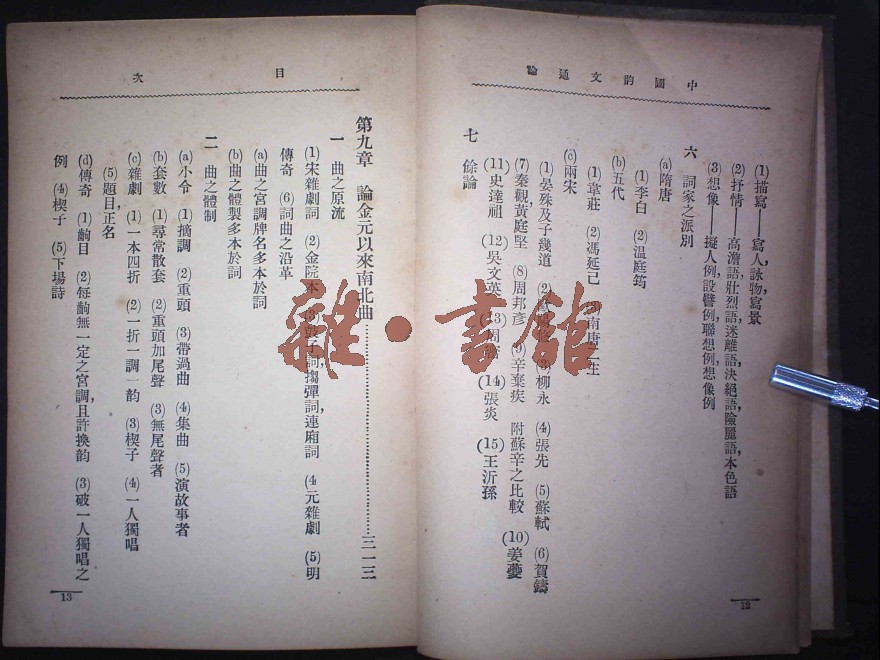 中國韵文通論
(1)描寫——寫人,詠物,寫景
(2)抒情——高澹語,壯烈語,迷離語,決絕語,險麗語,本色語
(3)想像——擬人例,設譬例,聯想例,想像例
六 詞家之派別
(a)隋唐
(1)李白 (2)溫庭筠
(b)五代
(1)韋莊 (2)馮延己 (3)南唐二主
(c)兩宋
(1)晏殊及子幾道 (2) (3)柳永 (4)張先 (5)蘇軾 (6)賀鑄
(7)秦觀,黃庭堅 (8)周邦彥 (9)辛棄疾 附蘇辛之比較 (10)姜夔
(11)史達祖 (12)吳文英 (13)周 (14)張炎 (15)王沂孫
七 餘論
12
目次
第九章 論金元以來南北曲…………三一三
一 曲之原流
(1)宋雜劇詞 (2)金院本 (3)鼓子詞,搊彈詞,連廂詞 (4元雜劇 (5)明
傳奇 (6)詞曲之沿革
(a)曲之宮調牌名多本於詞
(b)曲之體製多本於詞
二 曲之體制
(a)小令 (1)摘調 (2)重頭 (3)帶過曲 (4)集曲 (5)演故事者
(b)套數 (1)尋常散套 (2)重頭加尾聲 (3)無尾聲者
(c)雜劇 (1)一本四折 (2)一折一調一韵 (3)楔子 (4)一人獨唱
(5)題目,正名
(d)傳奇 (1)齣目 (2)每齣無一定之宮調,且許換韵 (3)破一人獨唱之
例 (4)楔子 (5)下場詩
13
雜·書館